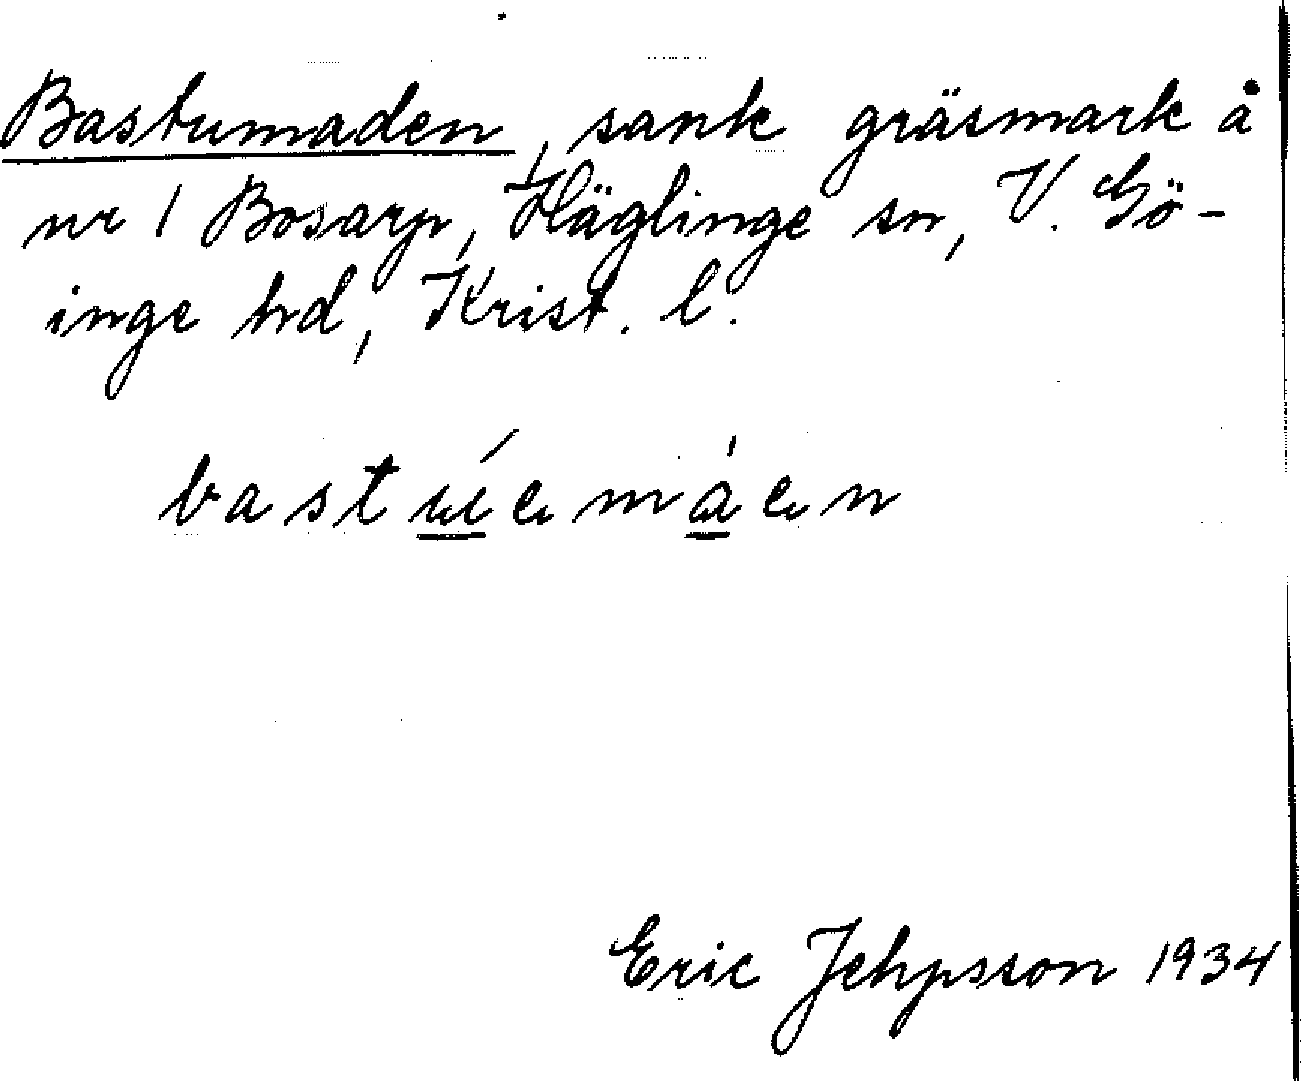 Bastumaden, sank gräsmark å
nr 1 Bosarp, Häglinge sn, V. Gö-
inge hd, Krist. l.
bastúemáen
Eric Jehpsson 1934